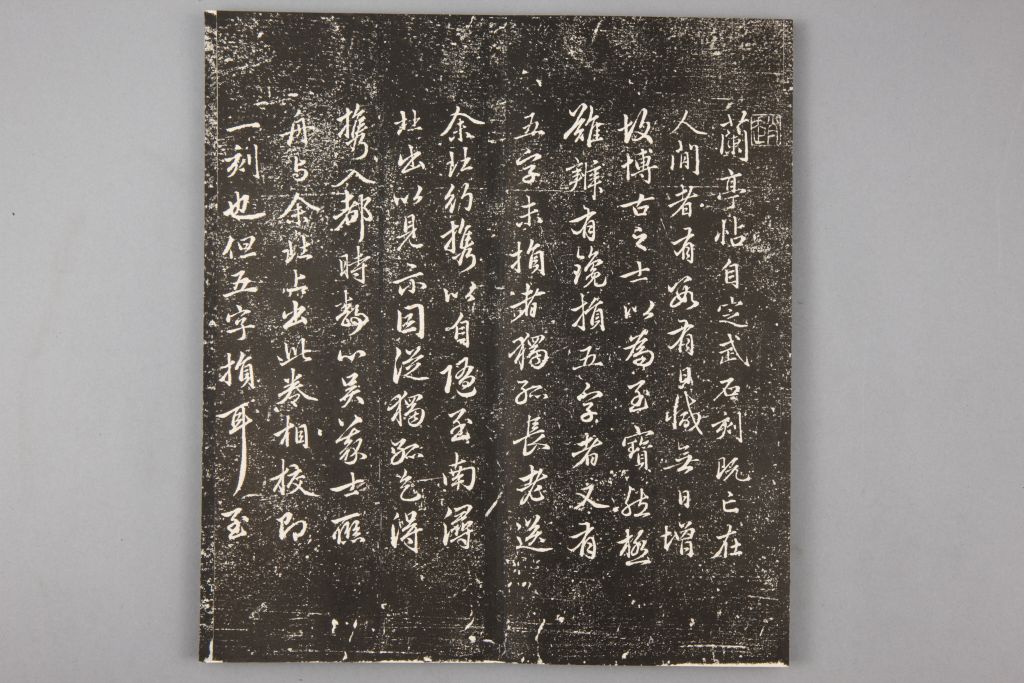 趙
蘭亭帖自定武石刻既亡在
人間者有數有日減無日增
故博古之士以為至寶然極
難辨有鐫損五字者又有
五字未損者獨孤長老送
余北行攜以自隨至南潯
北出以見示因從獨孤乞得
攜入都時靜心吳義士聯
舟與余北亦出此卷相校即
一刻也但五字損耳至